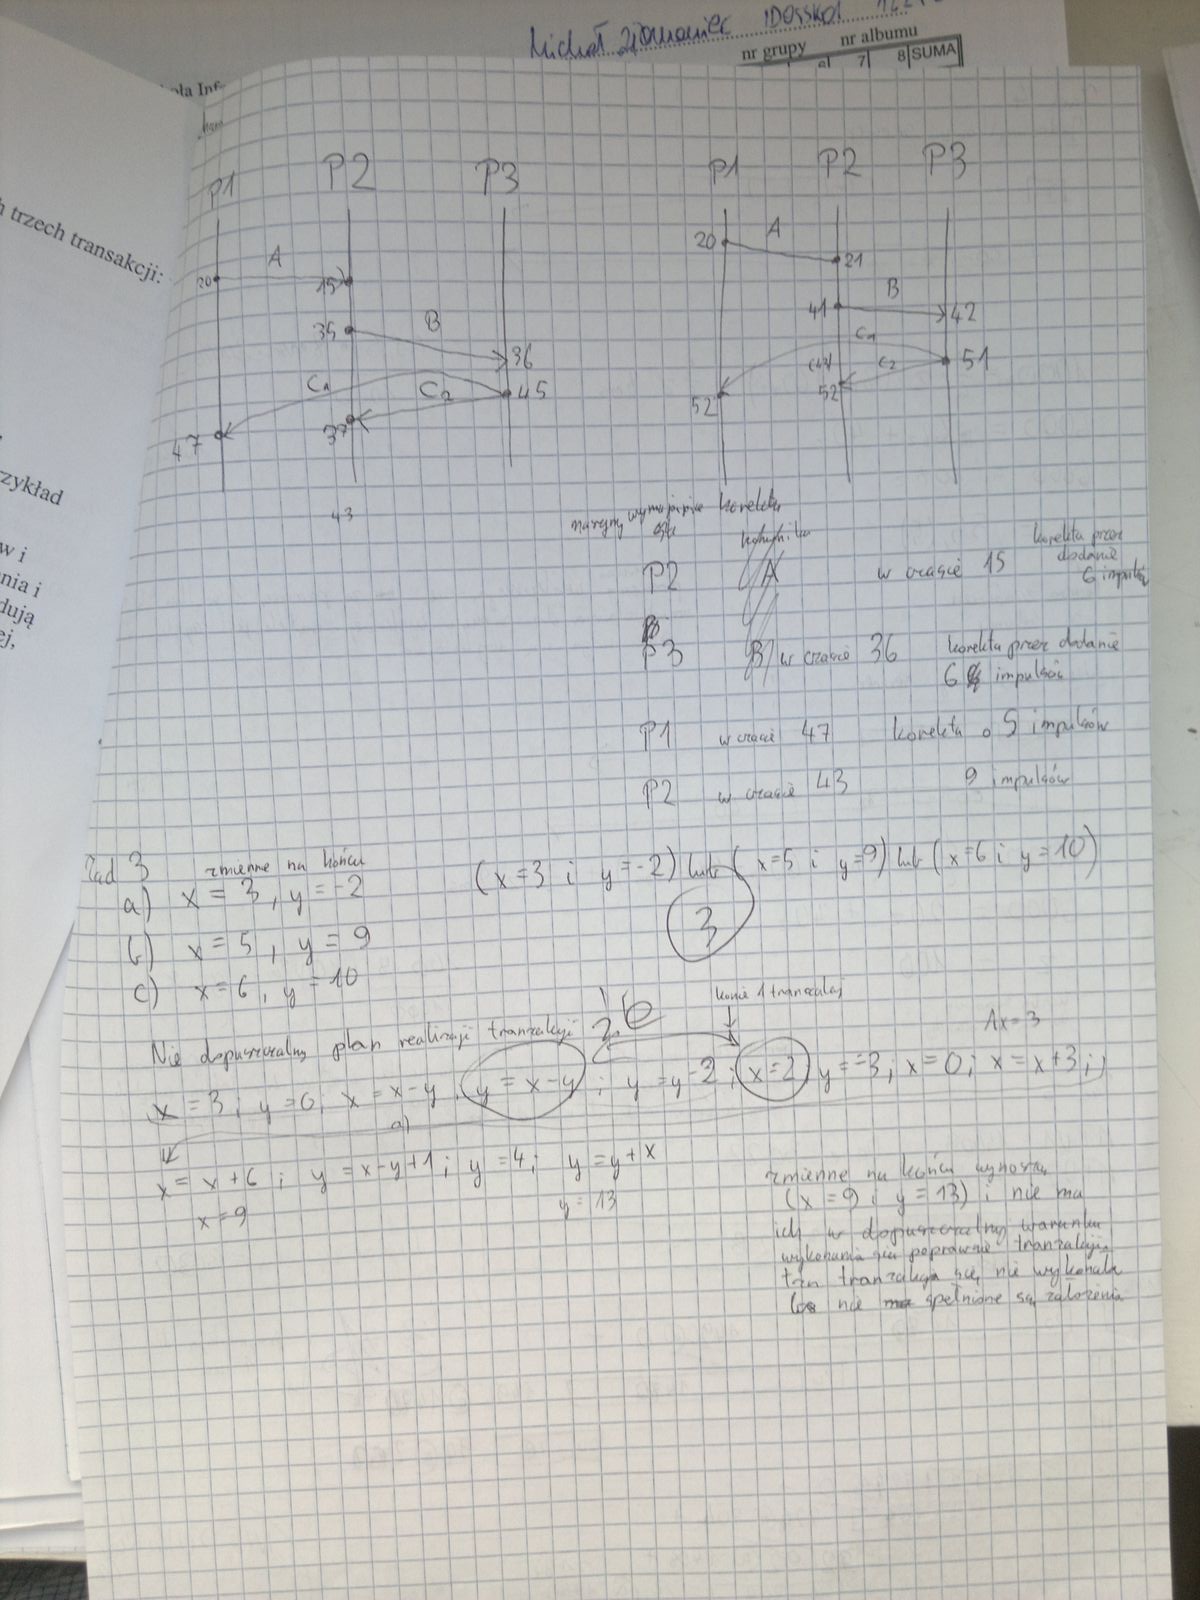 Michał
nr grupy nr albumu
7 8 SUMA
h trzech transakcji:
zykład
w i
nia i
dują
ej,
P1 P2 P3
A
20 15
35 B
36
C1 C2 45
47 37
43
P1 P2 P3
20 A
21
41 B 42
C1
C2 51
52 52
korekta
P2 A w czasie 15 korekta przez
dodanie
6 impulsów
P3 B w czasie 36 korekta przez dodanie
6 impulsów
P1 w czasie 47 korekta o 5 impulsów
P2 w czasie 43 9 impulsów
Zad 3 zmienne na końcu
a) x = 3, y = -2
b) x = 5, y = 9
c) x = 6, y = 10
(x=3 i y=-2) lub (x=5 i y=9) lub (x=6 i y=10)
3
Nie dopuszczalny plan realizacji tranzakcji
koniec 1 tranzakcji
x=3
x = 3; y = 0; x = x-y; y = x-y; y = y-2; x=2; y=-3; x=0; x = x+3;
a)
x = x+6; y = x-y+1; y = 4; y = y+x
x = 9
y = 13
zmienne na końcu wynoszą
(x=9 i y=13) i nie ma
ich w dopuszczalny warunku
wykonania się poprawnie tranzakcji
tzn tranzakcja się nie wykonała
bo nie spełnione są założenia